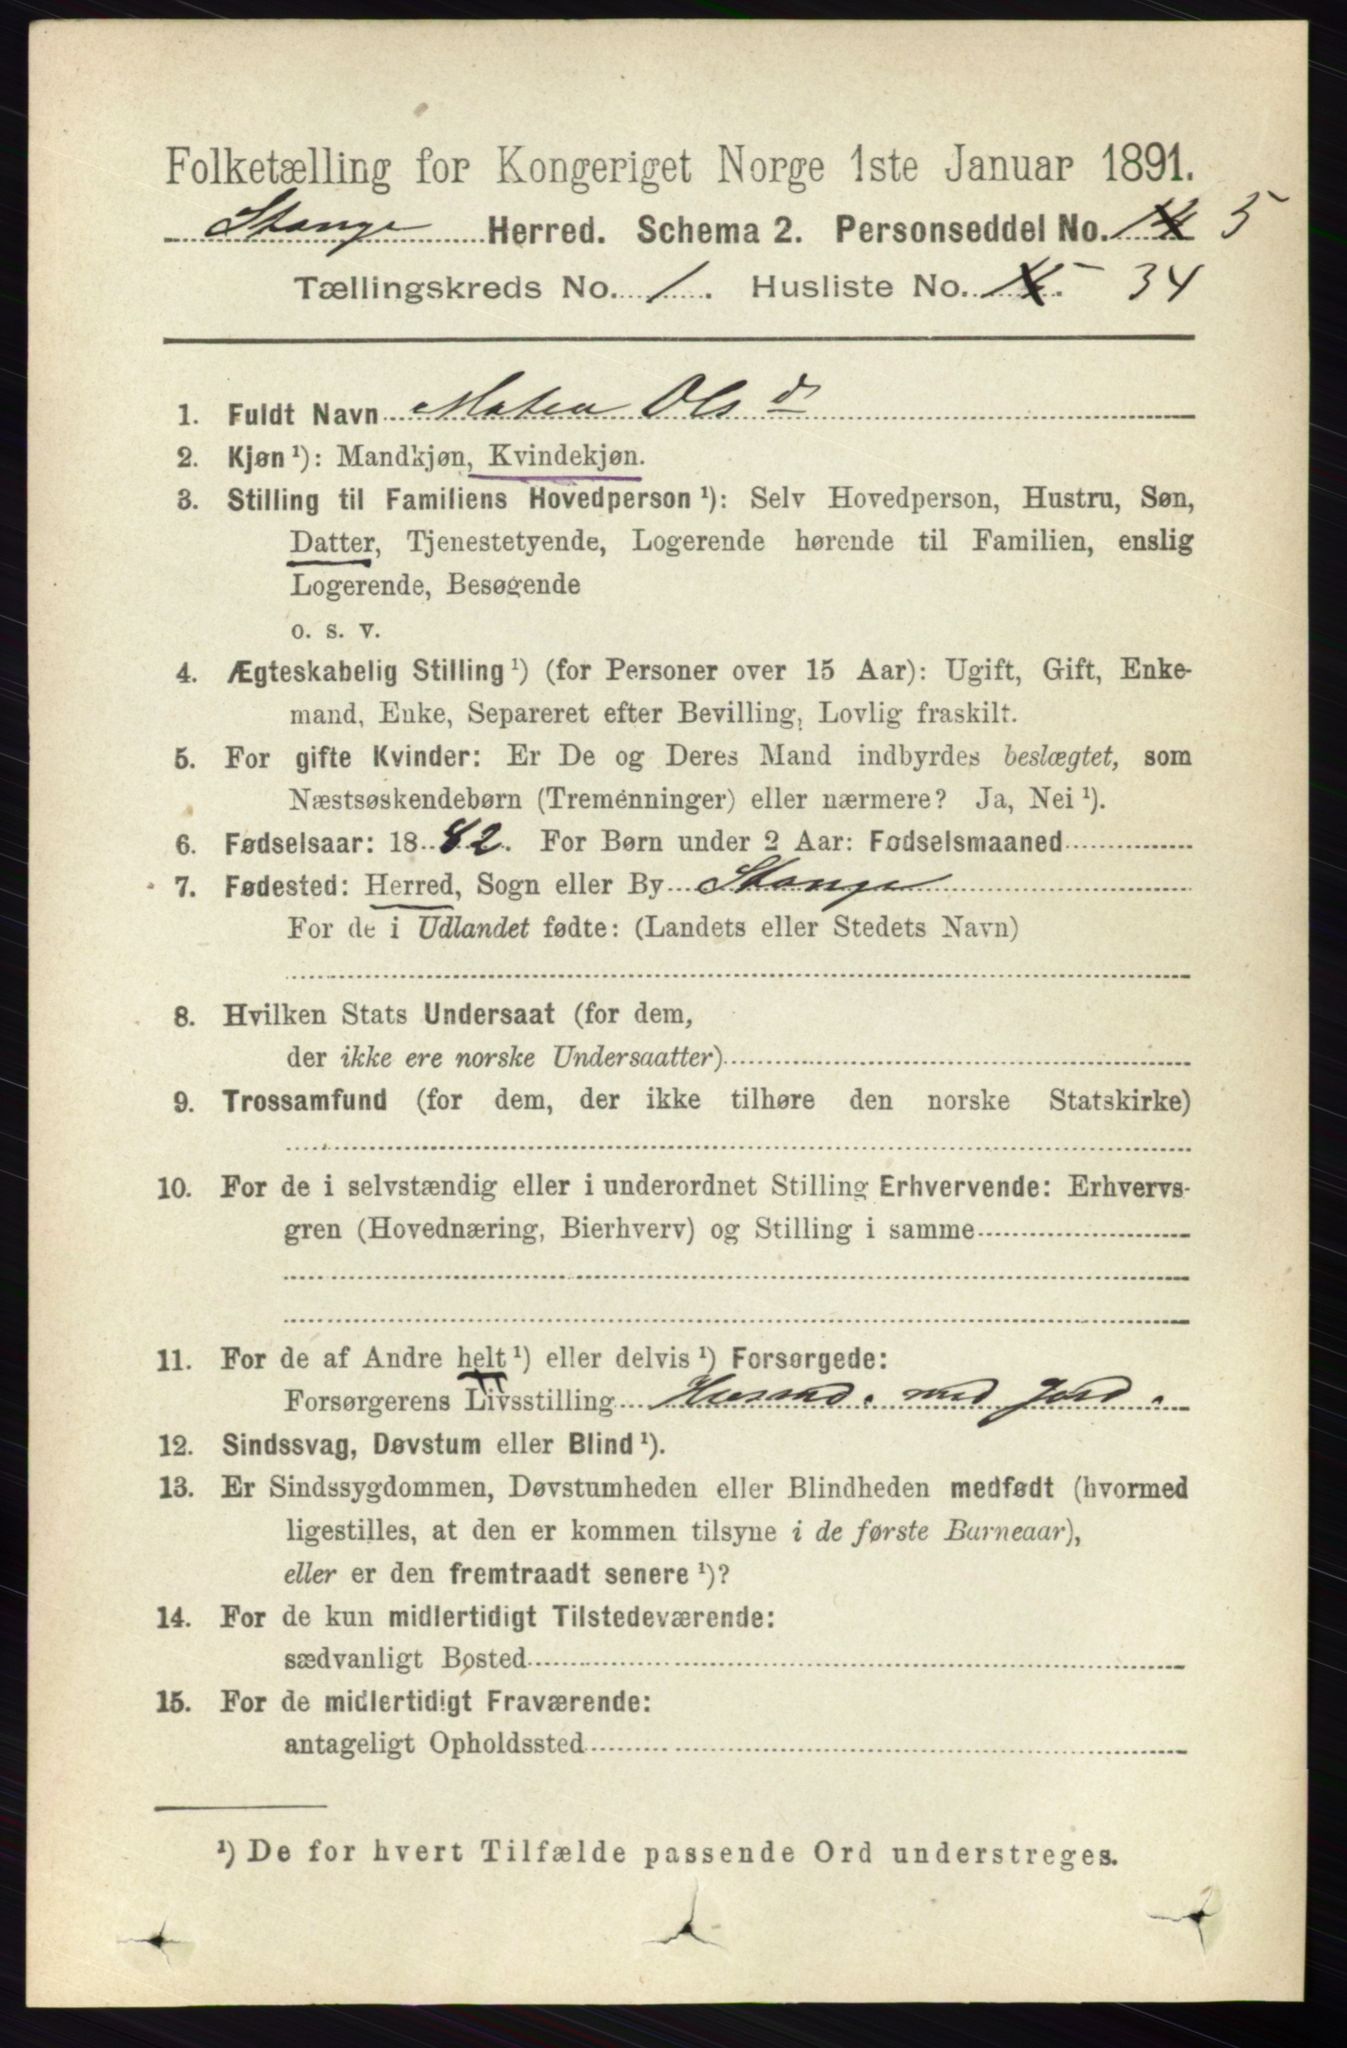 Folketælling for Kongeriget Norge 1ste Januar 1891.
Stange Herred. Schema 2. Personseddel No. 5
Tællingskreds No. 1. Husliste No. 34
1. Fuldt Navn Matea Olsd
2. Kjøn ¹): Mandkjøn, Kvindekjøn.
3. Stilling til Familiens Hovedperson ¹): Selv Hovedperson, Hustru, Søn,
Datter, Tjenestetyende, Logerende hørende til Familien, enslig
Logerende, Besøgende
o. s. v.
4. Ægteskabelig Stilling ¹) (for Personer over 15 Aar): Ugift, Gift, Enke-
mand, Enke, Separeret efter Bevilling, Lovlig fraskilt.
5. For gifte Kvinder: Er De og Deres Mand indbyrdes beslægtet, som
Næstsøskendebørn (Tremenninger) eller nærmere? Ja, Nei ¹).
6. Fødselsaar: 1882. For Børn under 2 Aar: Fodselsmaaned
7. Fødested: Herred, Sogn eller By Stange
For de i Udlandet fødte: (Landets eller Stedets Navn)
8. Hvilken Stats Undersaat (for dem,
der ikke ere norske Undersaatter)
9. Trossamfund (for dem, der ikke tilhøre den norske Statskirke)
10. For de i selvstændig eller i underordnet Stilling Erhvervende: Erhvervs-
gren (Hovednæring, Bierhverv) og Stilling i samme
11. For de af Andre helt ¹) eller delvis ¹) Forsørgede:
Forsørgerens Livsstilling Husmd. med Jord.
12. Sindssvag, Døvstum eller Blind ¹).
13. Er Sindssygdommen, Døvstumheden eller Blindheden medfødt (hvormed
ligestilles, at den er kommen tilsyne i de første Barneaar),
eller er den fremtraadt senere ¹)?
14. For de kun midlertidigt Tilstedeværende:
sædvanligt Bosted
15. For de midlertidigt Fraværende:
antageligt Opholdssted
¹) De for hvert Tilfælde passende Ord understreges.